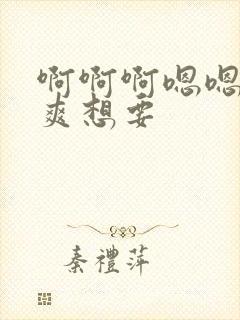 啊啊啊嗯嗯
爽想要
秦禮萍